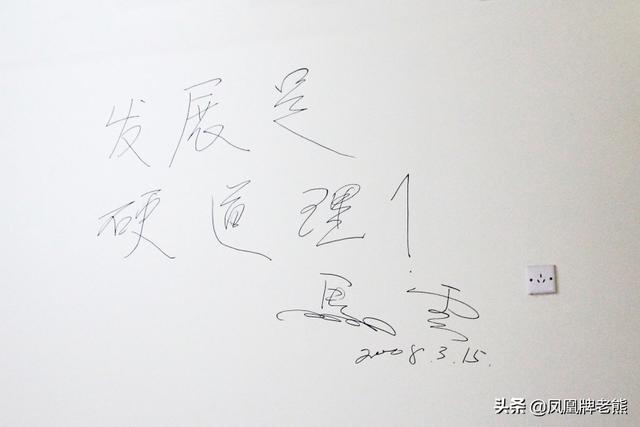 发展是
硬道理!
馬雲
2008.3.15.
头条 @凤凰牌老熊